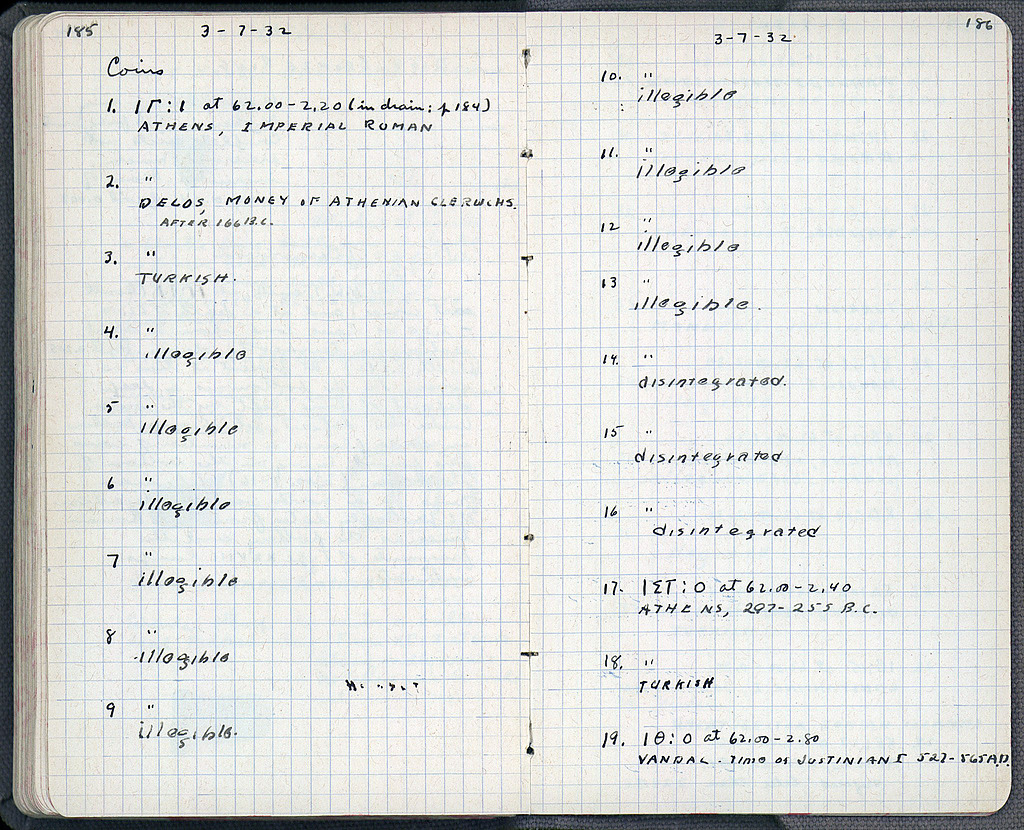 185
3-7-32
Coins
1. ΙΓ:1 at 62.00-2.20 (in drain: p 184)
ATHENS, IMPERIAL ROMAN
2. "
DELOS, MONEY OF ATHENIAN CLERUCHS.
AFTER 166 B.C.
3. "
TURKISH.
4. "
illegible
5 "
illegible
6 "
illegible
7 "
illegible
8 "
illegible
9 "
illegible.
186
3-7-32
10. "
illegible
11. "
illegible
12 "
illegible
13 "
illegible.
14. "
disintegrated.
15 "
disintegrated
16 "
disintegrated
17. ΙΣΤ:0 at 62.00-2.40
ATHENS, 297-255 B.C.
18. "
TURKISH
19. ΙΘ:0 at 62.00-2.80
VANDAL. Time of JUSTINIAN I 527-565 A.D.